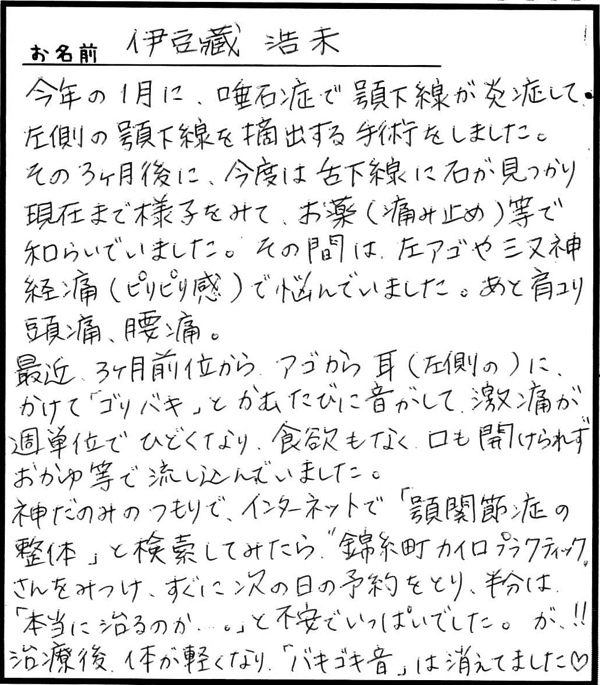 お名前 伊豆藏 浩未
今年の1月に、唾石症で顎下線が炎症して、
左側の顎下線を摘出する手術をしました。
その3ヶ月後に、今度は舌下線に石が見つかり
現在まで様子をみて、お薬(痛み止め)等で
和らいでいました。その間は、左アゴや三叉神
経痛(ピリピリ感)で悩んでいました。あと肩コリ
頭痛、腰痛。
最近、3ヶ月前位から、アゴから耳(左側の)に、
かけて「ゴリバキ」とかむたびに音がして、激痛が
週単位でひどくなり、食欲もなく、口も開けられず
おかゆ等で流し込んでいました。
神だのみのつもりで、インターネットで「顎関節症の
整体」と検索してみたら、"錦糸町カイロプラクティック"
さんをみつけ、すぐに次の日の予約をとり、半分は、
「本当に治るのか…。」と不安でいっぱいでした。が、!!
治療後、体が軽くなり、「バキゴキ音」は消えてました♡